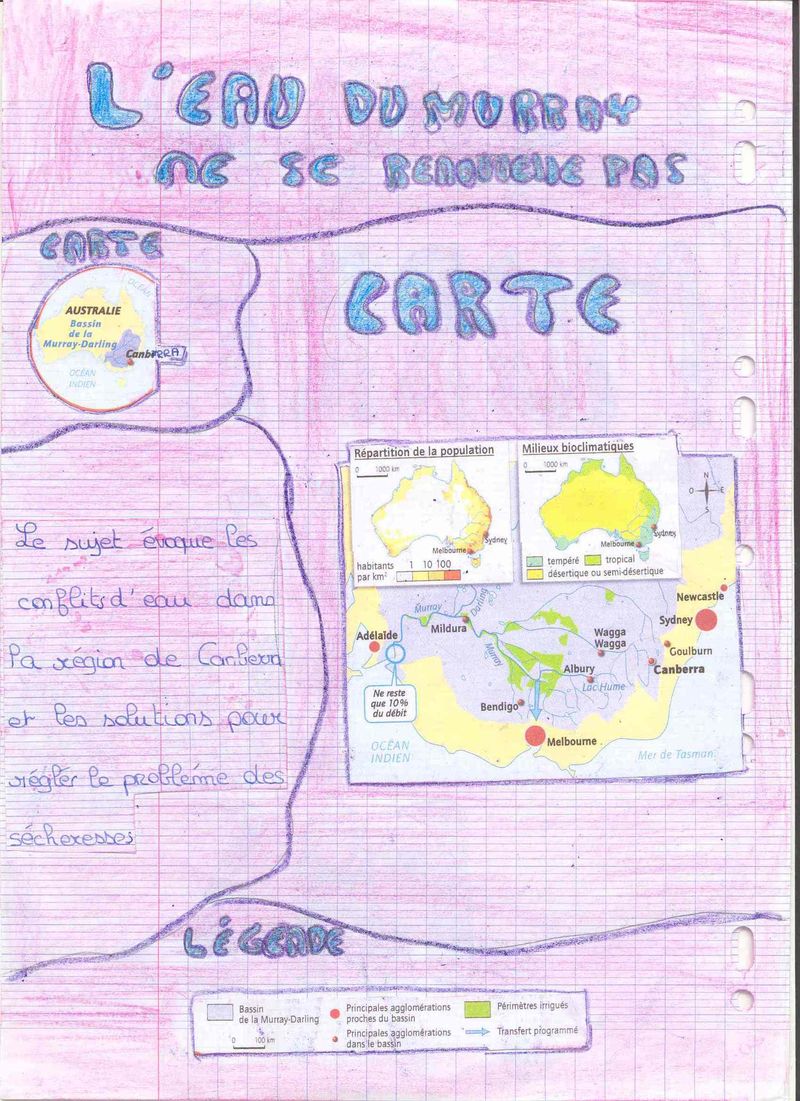 L'EAU DU MURRAY
NE SE RENOUVELLE PAS
CARTE
OCÉAN
AUSTRALIE
Bassin
de la
Murray-Darling
CanbERRA
OCÉAN
INDIEN
CARTE
Répartition de la population
0 1000 km
Sydney
Melbourne
habitants
par km²
1 10 100
Milieux bioclimatiques
0 1000 km
Sydney
Melbourne
tempéré
tropical
désertique ou semi-désertique
N
O E
S
Newcastle
Sydney
Murray
Darling
Mildura
Adélaïde
Murray
Wagga
Wagga
Goulburn
Albury
Canberra
Lac Hume
Ne reste
que 10%
du débit
Bendigo
Melbourne
OCÉAN
INDIEN
Mer de Tasman
Le sujet évoque les
conflits d'eau dans
la région de Canberra
et les solutions pour
régler le problème des
sécheresses
LÉGENDE
Bassin
de la Murray-Darling
0 100 km
Principales agglomérations
proches du bassin
Principales agglomérations
dans le bassin
Périmètres irrigués
Transfert programmé